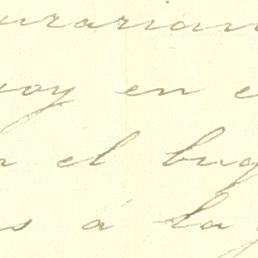 urarian
voy en e
el bug
s á la